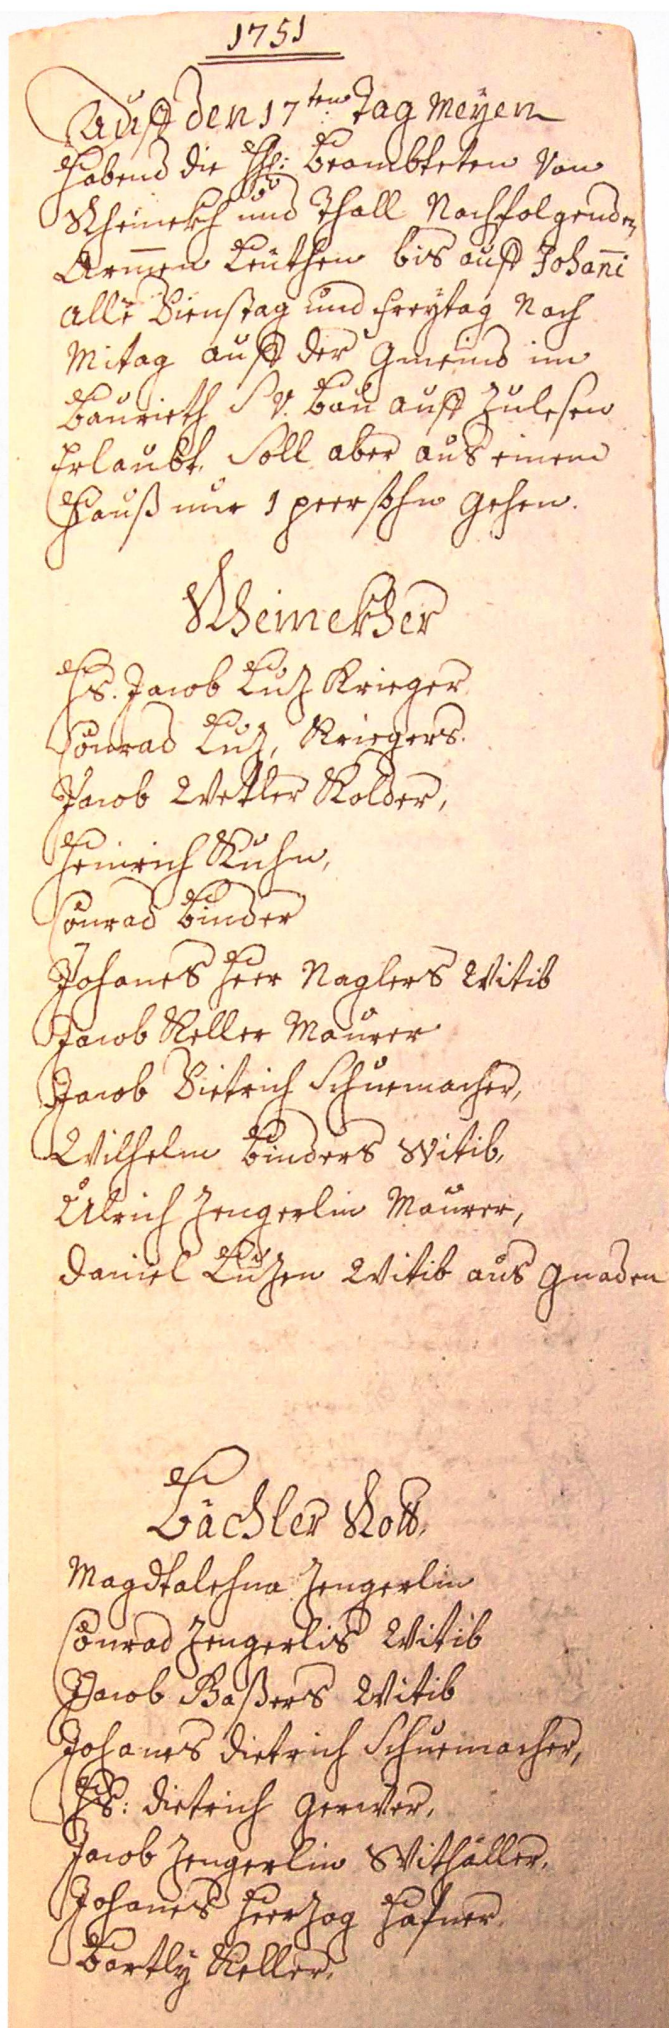 1751
Auff den 17ten Tag Meÿen
Habend die HH: Beambteten Von
Rheinekh und Thall Nachfolgenden
Armen Leüthen bis auff Johañi
alle Dienstag und Freÿtag Nach
Mitag auff der Gmeind im
Baurieth S.V. Bau auff Zulesen
Erlaubt. Soll aber aus einem
Hauß nur 1 peersohn gehen.
Rheinekher
Hs. Jacob Lutz Krieger
Conrad Lutz, Kriegers.
Jacob Wetler Kolder,
Heinrich Kuhn,
Conrad Binder
Johanes Heer Naglers Witib
Jacob Keller Maurer
Jacob Dietrich Schuemacher,
Wilhelm Binders Witib,
Ulrich Zengerlin Maurer,
Daniel Lutzen Witib aus Gnaden
Bächler Rott,
Magdtalehna Zengerlin
Conrad Zengerlis Witib
Jacob Baßers Witib
Johanes Dietrich Schuemacher,
Hs: Dietrich Gerwer,
Jacob Zengerlin Withäller,
Johanes Heerzog Hafner,
Bartlÿ Keller,